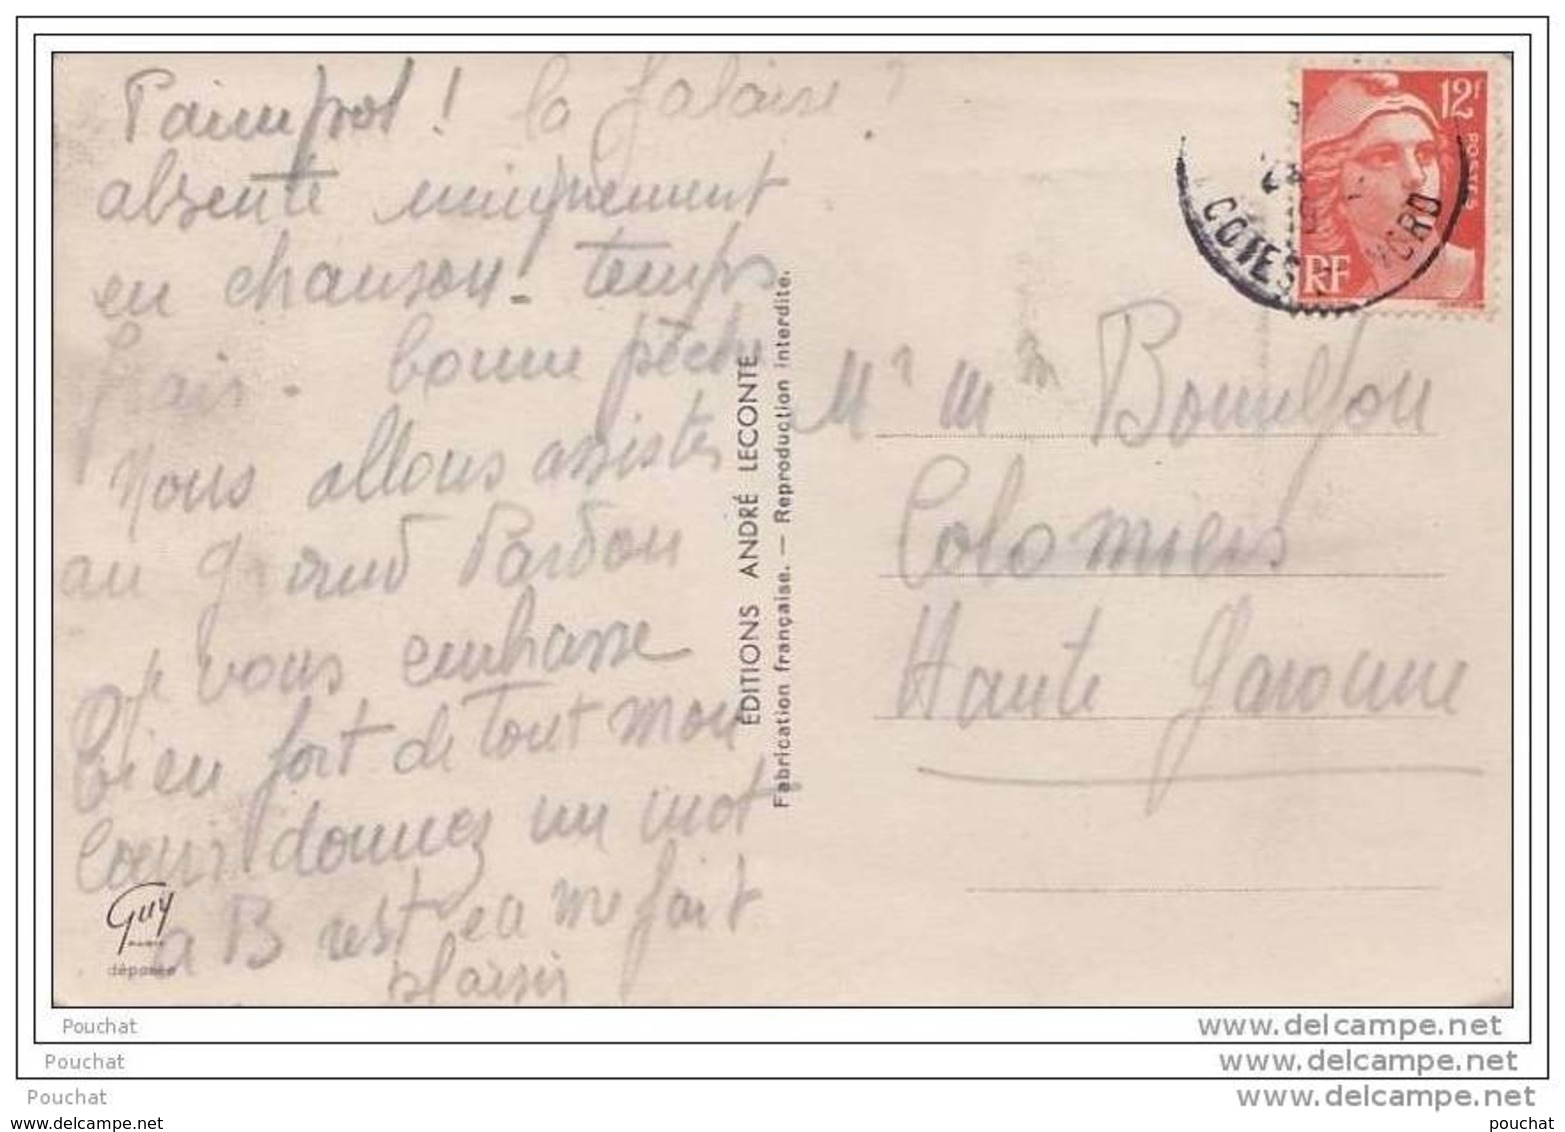 Paimpol ! la falaise ?
absente uniquement
en chanson - temps
frais - bonne pêche
Nous allons assister
au grand Pardon
je vous embrasse
bien fort de tout mon
coeur donnez un mot
a B rest ça me fait
plaisir
GUY
PARIS
déposée
EDITIONS ANDRÉ LECONTE
Fabrication française. — Reproduction interdite.
12F
POSTES
RF
COTES NORD
Mr Mm
Colomiers
Haute Garonne
Pouchat
Pouchat
Pouchat
www.delcampe.net
www.delcampe.net
www.delcampe.net
www.delcampe.net
pouchat